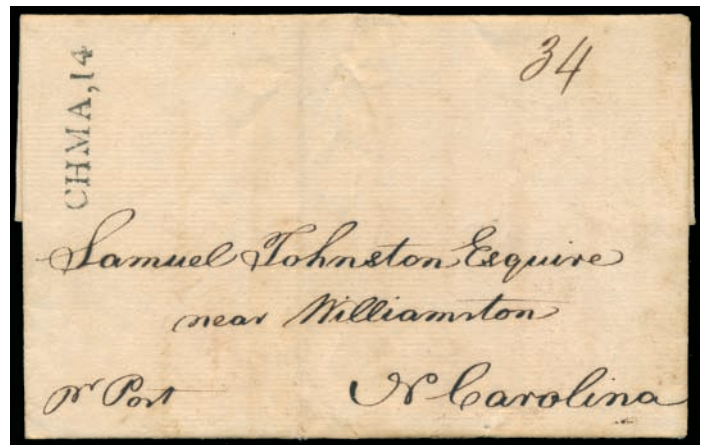 CHMA,14
34
Samuel Johnston Esquire
near Williamston
pr Post
N Carolina